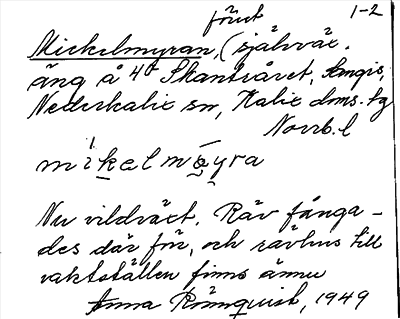 förut 1-2
Mickelmyran, (självväx.
äng å 4⁰ Skantråret, Langis,
Nederkalix sn, Kalix dms. tg
Norrb. l
mikelmøyra
Nu vildväxt. Räv fånga-
des där för, och rävhus till
vaktställen finns ännu
Anna Rönnquist, 1949